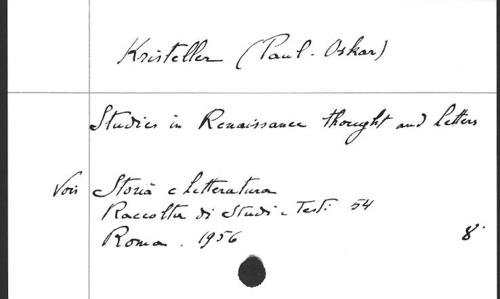 Kristeller (Paul-Oskar)
Studies in Renaissance thought and letters
Voir Storia e letteratura
Raccolta di Studi e Testi 54
Roma. 1956 8°